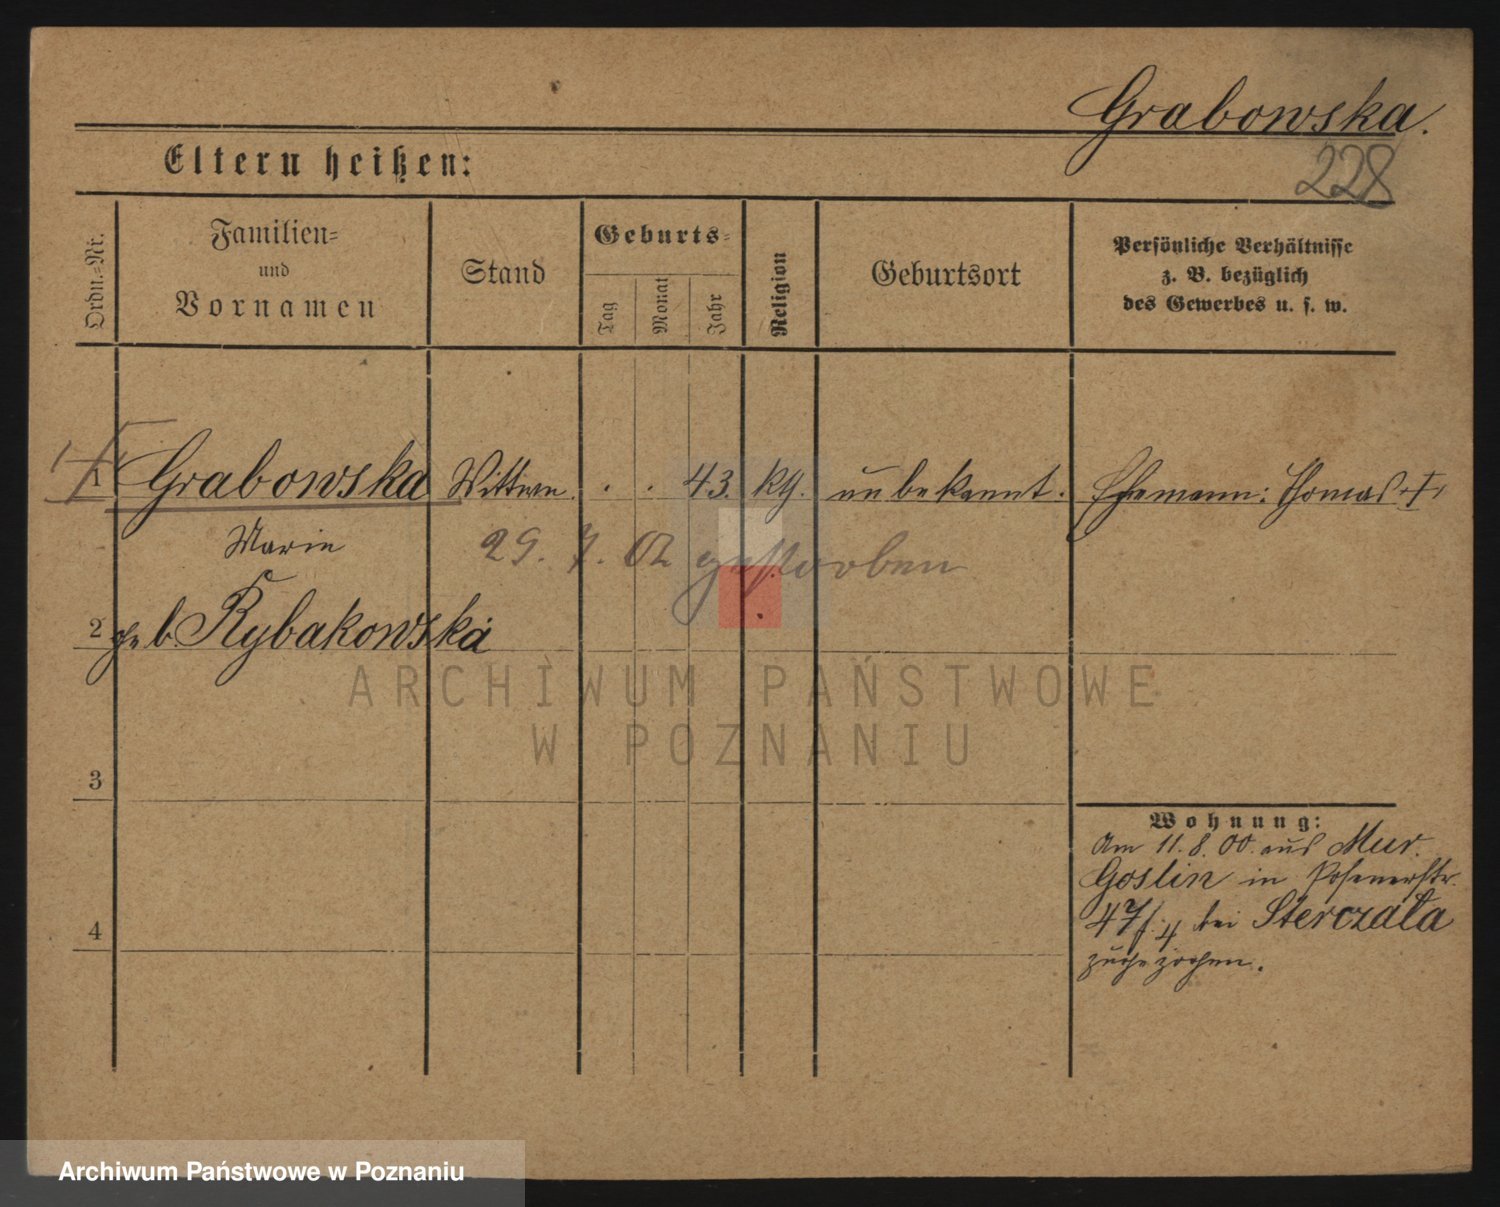 Grabowska.
228
Eltern heißen:
Ordn.-Nr.
Familien-
und
Vornamen
Stand
Geburts-
Tag
Monat
Jahr
Religion
Geburtsort
Persönliche Verhältnisse
z. B. bezüglich
des Gewerbes u. s. w.
1 Grabowska Wittwe. . . 43. kth. unbekannt. Ehemann: Thomas †
Marie
29. 7. 02 gestorben
2 geb. Rybakowska
ARCHIWUM PAŃSTWOWE
W POZNANIU
3
Wohnung:
Am 11. 8. 00. aus Mur.
Goslin in Posenerstr.
4 47/4 bei Sterczała
zugezogen.
Archiwum Państwowe w Poznaniu